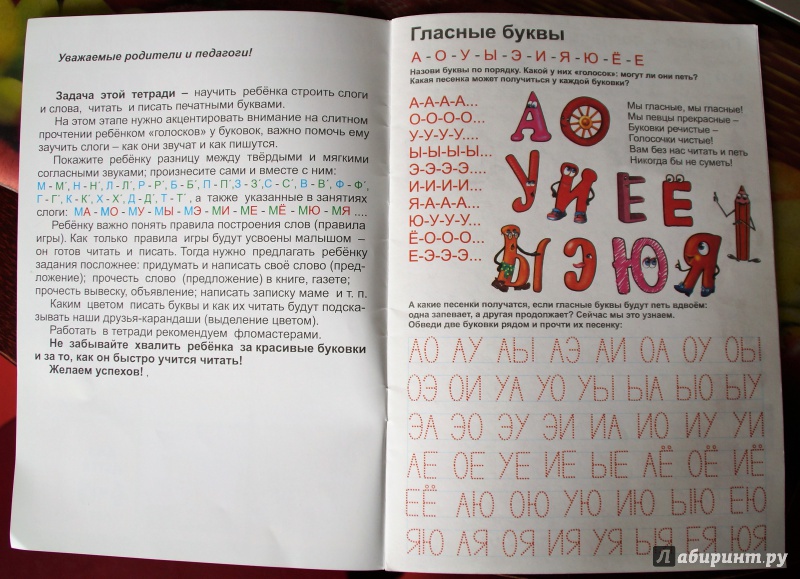 Уважаемые родители и педагоги!
Задача этой тетради – научить ребёнка строить слоги
и слова, читать и писать печатными буквами.
На этом этапе нужно акцентировать внимание на слитном
прочтении ребёнком «голосков» у буковок, важно помочь ему
заучить слоги – как они звучат и как пишутся.
Покажите ребёнку разницу между твёрдыми и мягкими
согласными звуками; произнесите сами и вместе с ним:
М - М', Н - Н', Л - Л', Р - Р', Б - Б', П - П', З - З', С - С', В - В', Ф - Ф',
Г - Г', К - К', Х - Х', Д - Д', Т - Т', а также указанные в занятиях
слоги: МА - МО - МУ - МЫ - МЭ - МИ - МЕ - МЁ - МЮ - МЯ ....
Ребёнку важно понять правила построения слов (правила
игры). Как только правила игры будут усвоены малышом –
он готов читать и писать. Тогда нужно предлагать ребёнку
задания посложнее: придумать и написать своё слово (пред-
ложение); прочесть слово (предложение) в книге, газете;
прочесть вывеску, объявление; написать записку маме и т. п.
Каким цветом писать буквы и как их читать будут подска-
зывать наши друзья-карандаши (выделение цветом).
Работать в тетради рекомендуем фломастерами.
Не забывайте хвалить ребёнка за красивые буковки
и за то, как он быстро учится читать!
Желаем успехов!
Гласные буквы
А - О - У - Ы - Э - И - Я - Ю - Ё - Е
Назови буквы по порядку. Какой у них «голосок»: могут ли они петь?
Какая песенка может получиться у каждой буковки?
А-А-А-А...
О-О-О-О...
У-У-У-У....
Ы-Ы-Ы-Ы...
Э-Э-Э-Э....
И-И-И-И...
Я-А-А-А...
Ю-У-У-У...
Ё-О-О-О...
Е-Э-Э-Э...
А О
У И Е Ё
Ы Э Ю Я
Мы гласные, мы гласные!
Мы певцы прекрасные –
Буковки речистые –
Голосочки чистые!
Вам без нас читать и петь
Никогда бы не суметь!
А какие песенки получатся, если гласные буквы будут петь вдвоём:
одна запевает, а другая продолжает? Сейчас мы это узнаем.
Обведи две буковки рядом и прочти их песенку:
АО АУ АЫ АЭ АИ ОА ОУ ОЫ
ОЭ ОИ УА УО УЫ ЫА ЫО ЫУ
ЭА ЭО ЭУ ЭИ ИА ИО ИУ УИ
АЕ ОЕ УЕ ИЕ ЫЕ АЁ ОЁ ИЁ
ЕЁ АЮ ОЮ УЮ ИЮ ЫЮ ЕЮ
ЯЮ АЯ ОЯ ИЯ УЯ ЫЯ ЕЯ ЮЯ
Лабиринт.ру